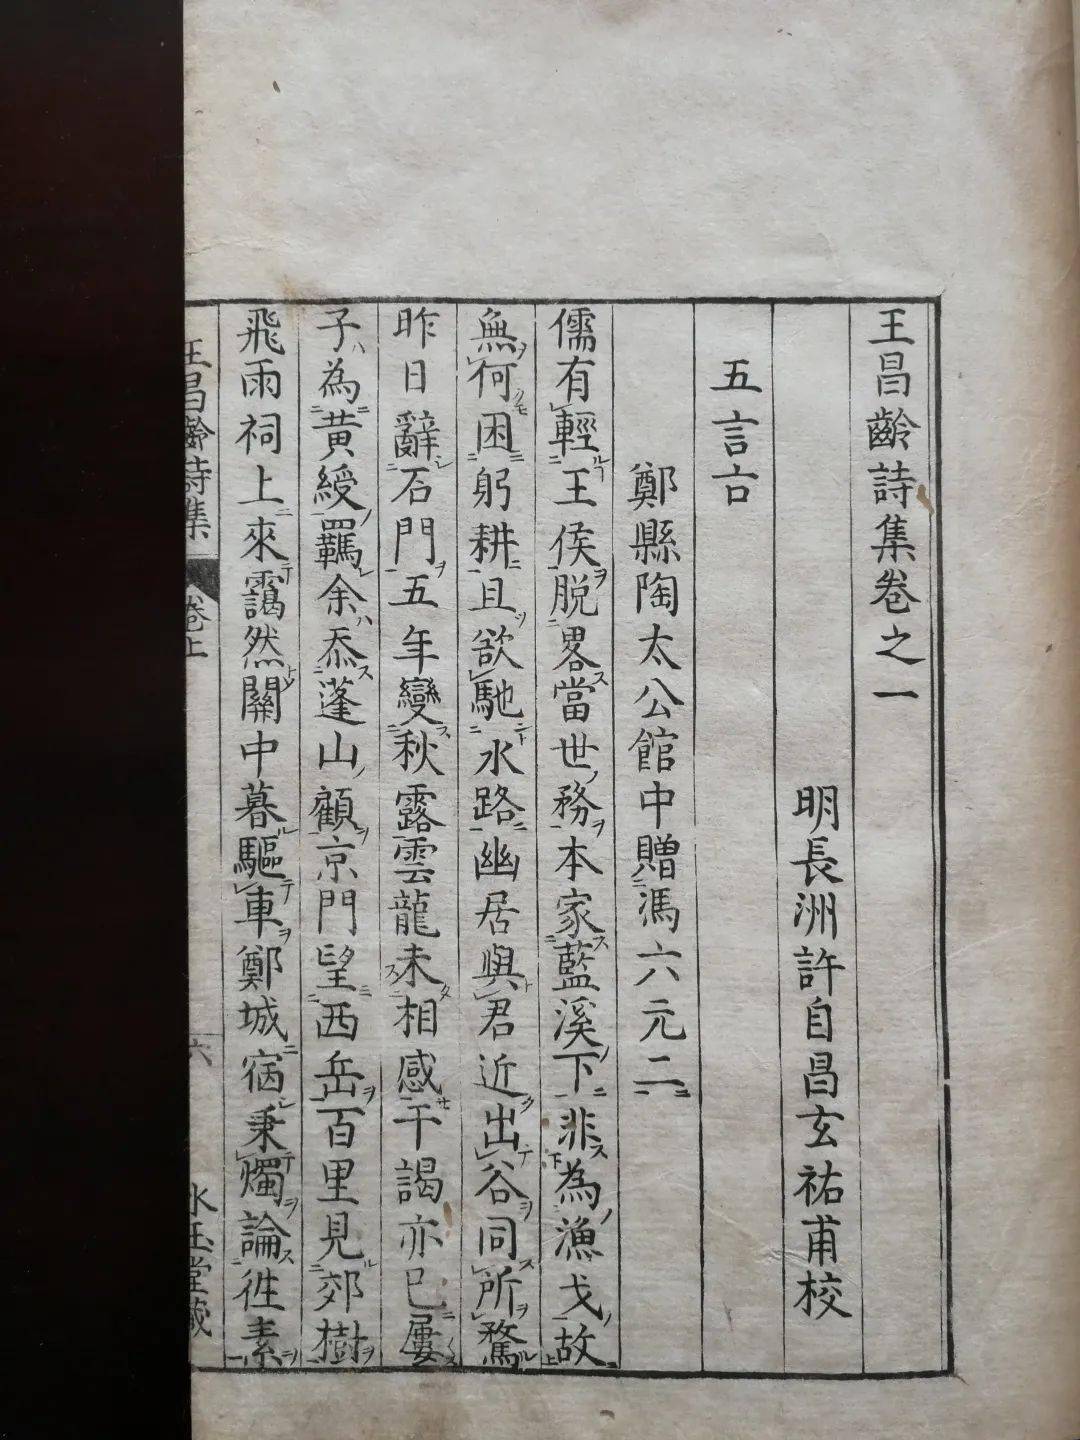 王昌齡詩集卷之一
明長洲許自昌玄祐甫校
五言古
鄭縣陶太公館中贈馮六元二
儒有輕王侯脱畧當世務本家藍溪下非為漁弋故
無何困躬耕且欲馳水路幽居與君近出谷同所騖
昨日辭石門五年變秋露雲龍未相感干謁亦已屢
子為黄綬羈余忝蓬山顧京門望西岳百里見郊樹
飛雨祠上來靄然關中暮驅車鄭城宿秉燭論徃素
王昌齡詩集 卷上 六 氷玉堂藏